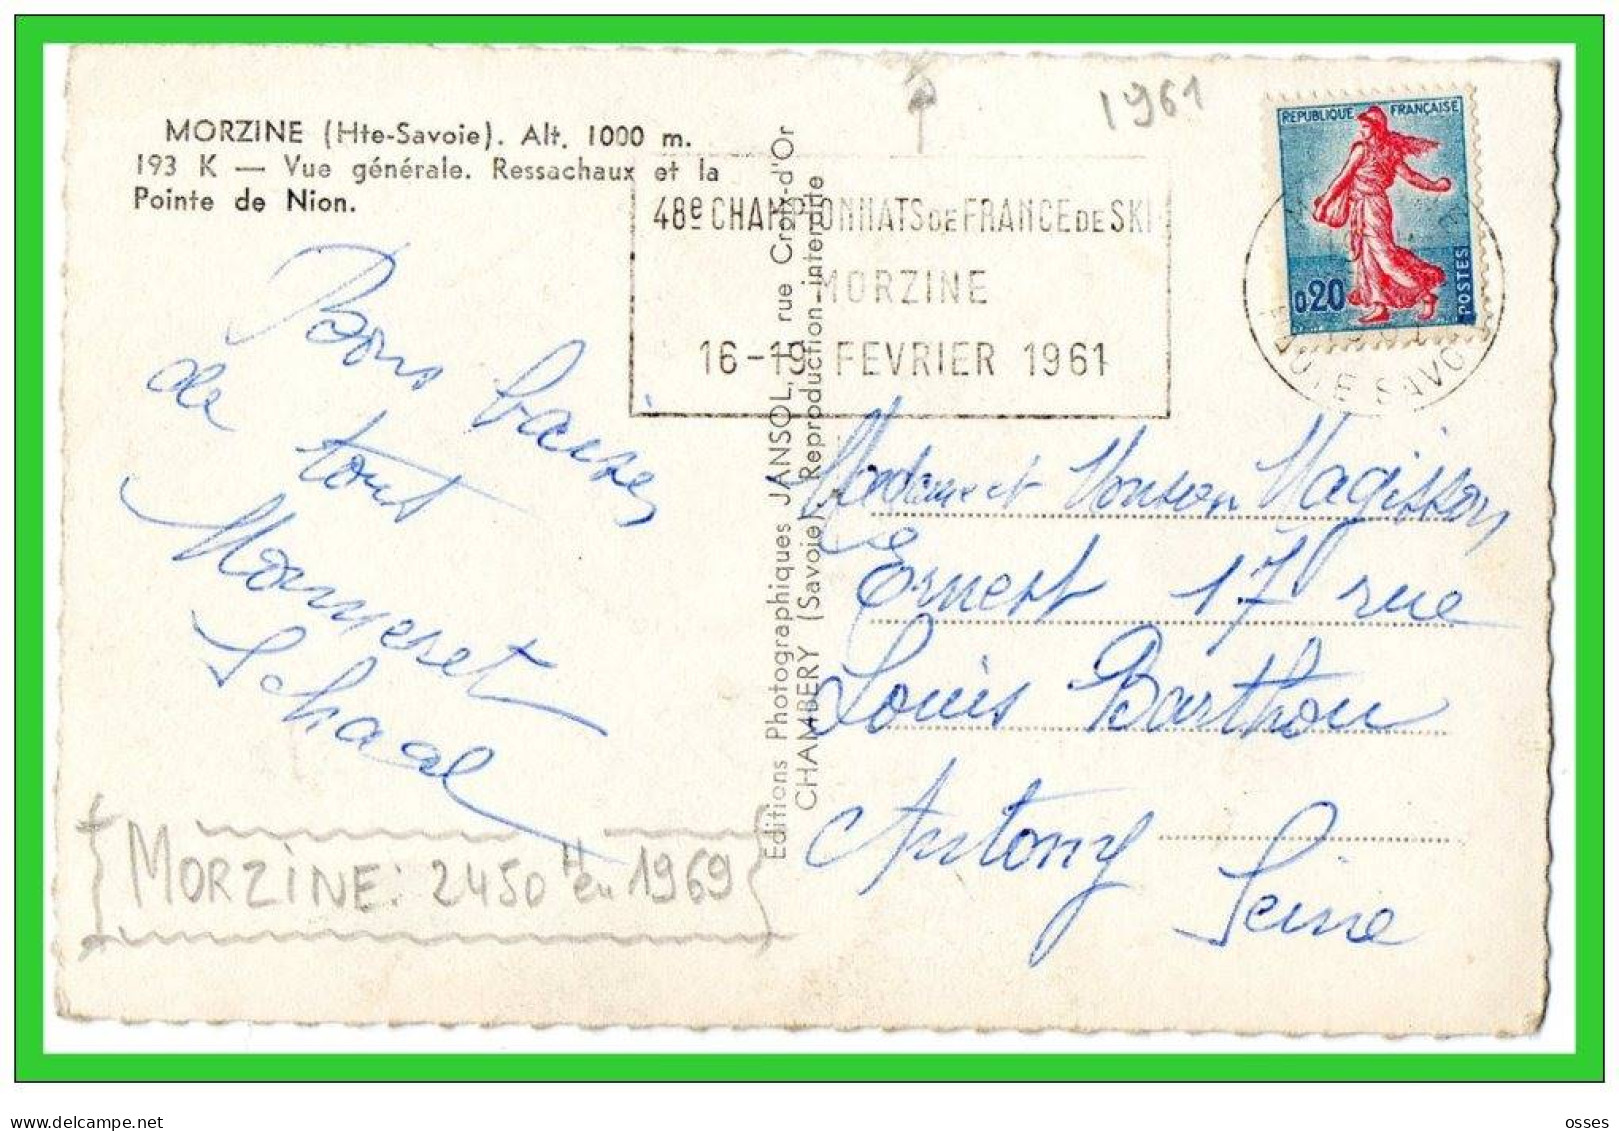 MORZINE (Hte-Savoie). Alt. 1000 m.
193 K — Vue générale. Ressachaux et la
Pointe de Nion.
1961
48e CHAMPIONNATS DE FRANCE DE SKI
MORZINE
16-19 FEVRIER 1961
REPUBLIQUE FRANÇAISE
0,20
POSTES
HAUTE SAVOIE
Bons baisers
de tout
Schaal
MORZINE: 2450 H en 1969
Editions Photographiques JANSOL, rue Croix-d'Or
CHAMBERY (Savoie). Reproduction interdite
Madame et Monsieur Magisson
Ernest 17 rue
Louis Barthou
Antony
Seine
www.delcampe.net
osses